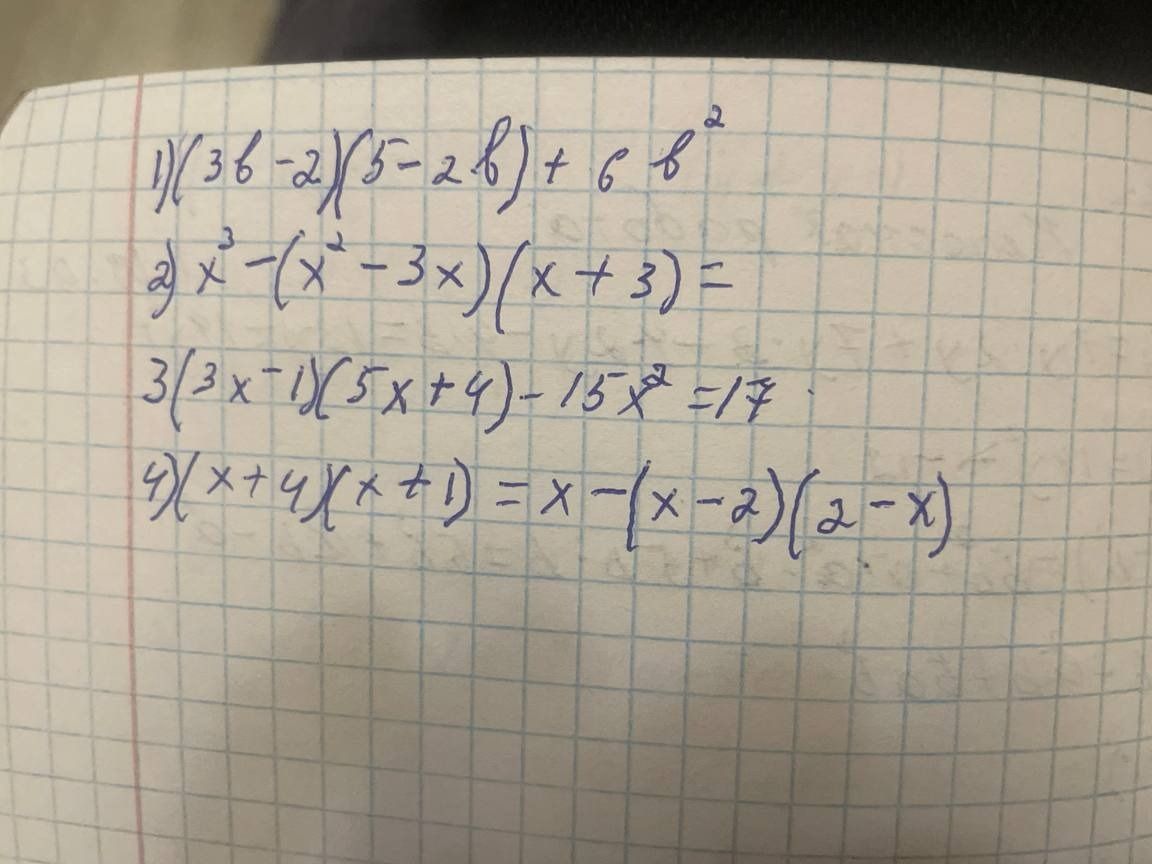 1)(3b-2)(5-2b)+6b²
2) x³-(x²-3x)(x+3)=
3(3x-1)(5x+4)-15x²=17
4)(x+4)(x+1)=x-(x-2)(2-x)